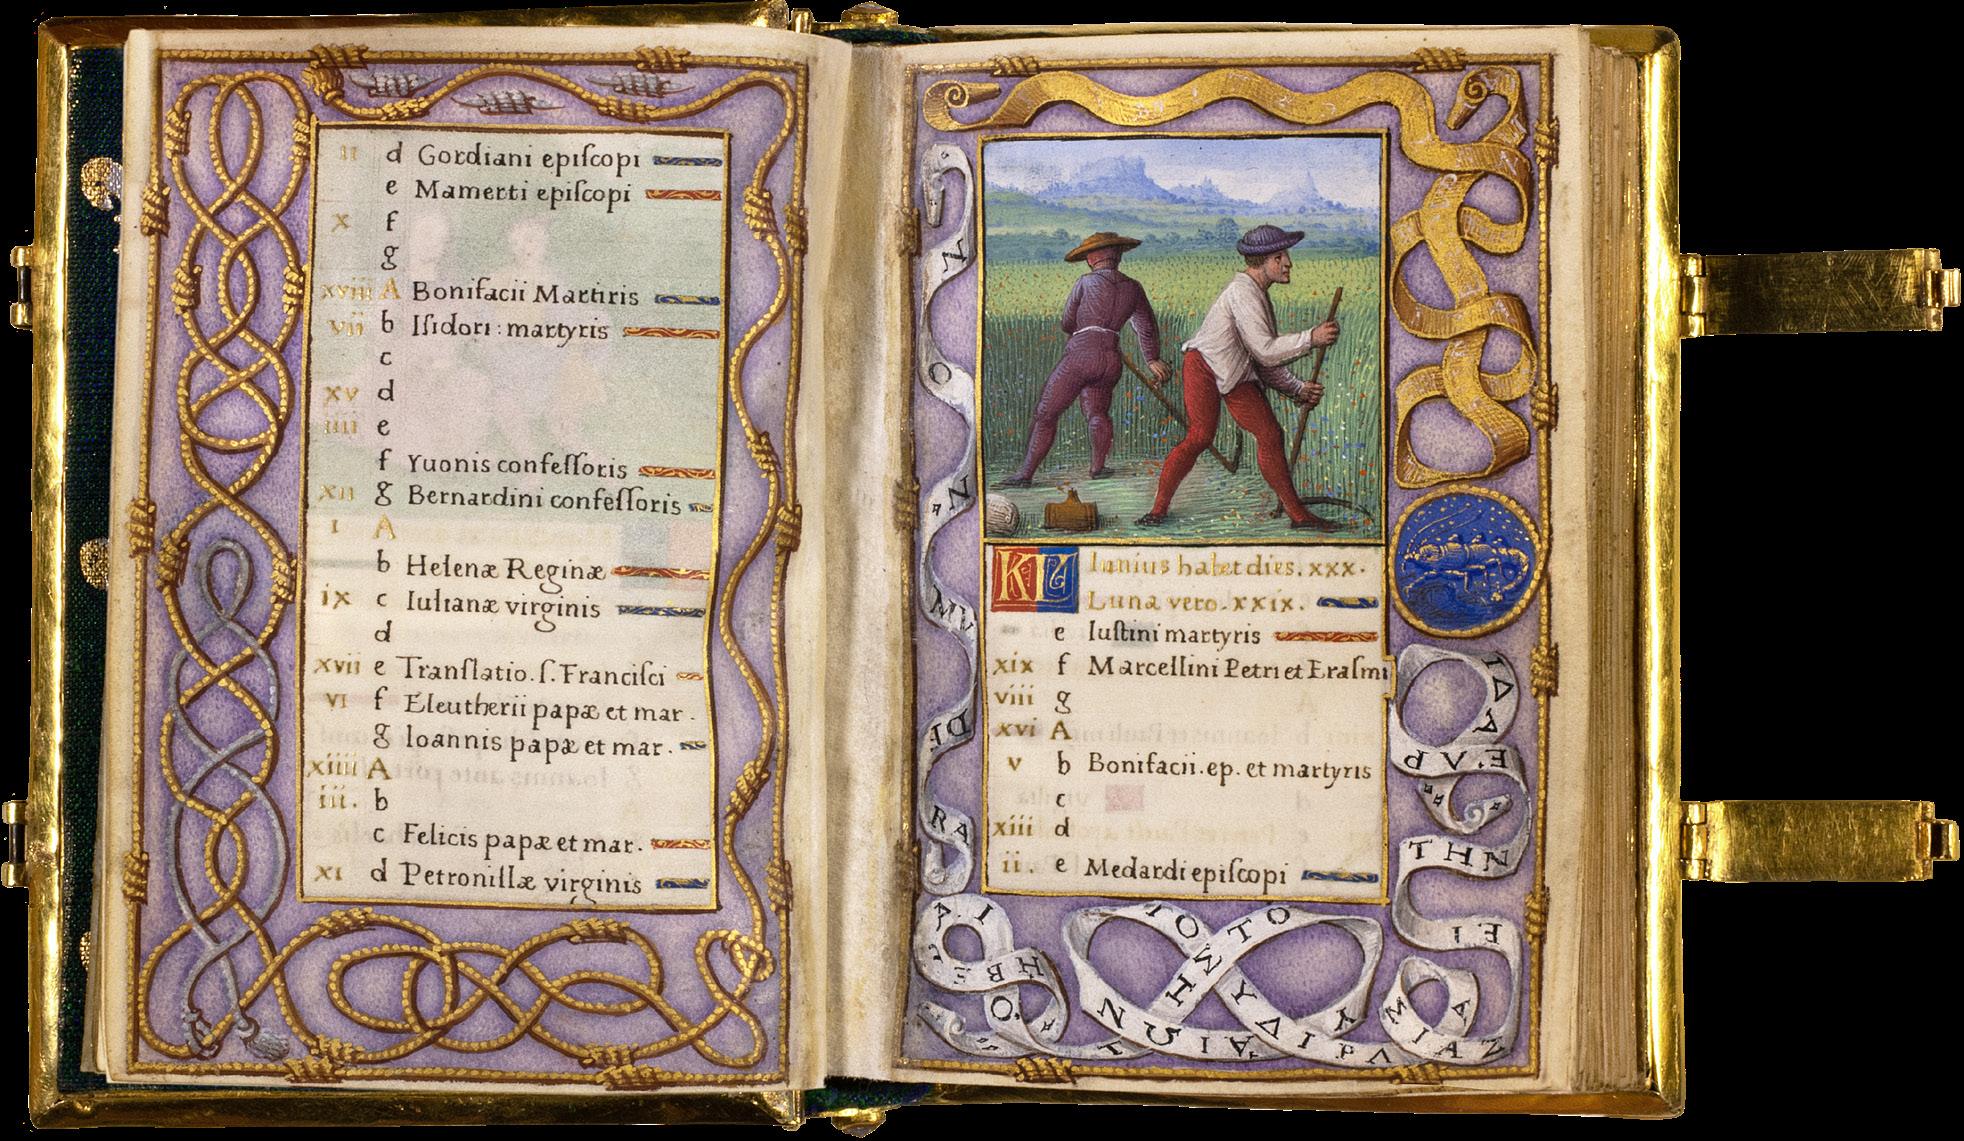 ii d Gordiani epiſcopi
e Mamerti epiſcopi
x f
g
xviii A Bonifacii Martiris
vii b Iſidori : martyris
c
xv d
iiii e
f Yuonis confeſſoris
xii g Bernardini confeſſoris
I A
b Helenæ Reginæ
ix c Iulianæ virginis
d
xvii e Tranſlatio. ſ. Franciſci
vi f Eleutherii papæ et mar.
g Ioannis papæ et mar.
xiiii A
iii. b
c Felicis papæ et mar.
xi d Petronillæ virginis
KL Iunius habet dies. xxx.
Luna vero. xxix.
e Iuſtini martyris
xix f Marcellini Petri et Eraſmi
viii g
xvi A
v b Bonifacii. ep. et martyris
c
xiii d
ii. e Medardi epiſcopi